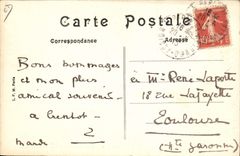 Carte Postale
Correspondance
Adresse
Bons hommages
et mon plus
amical souvenir
a bientot
Mardi
à Mr René Laporte
18 rue Lafayette
Toulouse
(Hte Garonne)